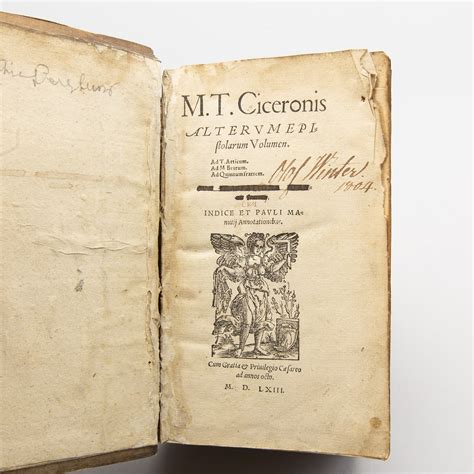 M. T. Ciceronis
ALTERVM EPI-
stolarum Volumen.
Ad T. Atticum.
Ad M. Brutum.
Ad Quintum fratrem.
Olof Winter
1804.
CVM
INDICE ET PAVLI MA-
nutij Annotationibus.
Cum Gratia & Privilegio Cæsareo
ad annos octo.
M. D. LXIII.